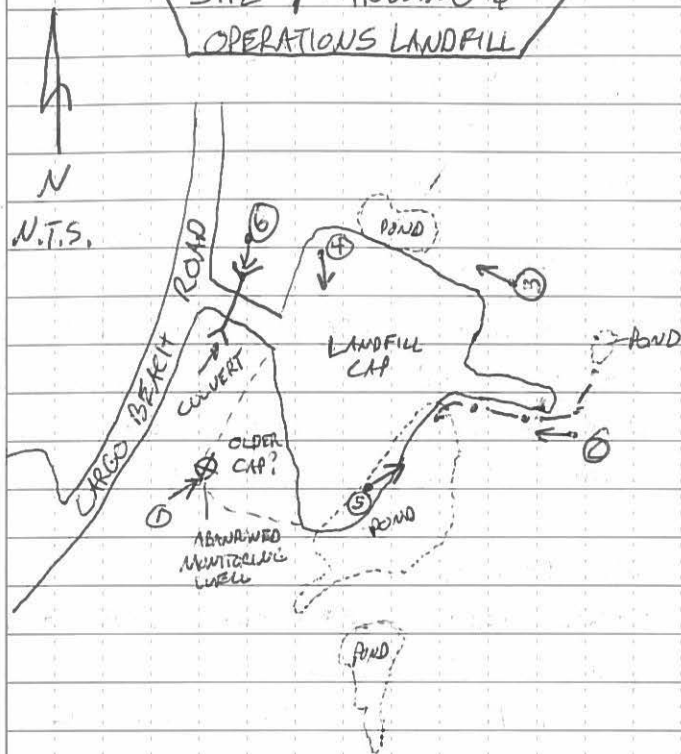 OPERATIONS LANDFILL
N
N.T.S.
CARGO BEACH ROAD
6
4
POND
3
LANDFILL
CAP
POND
CULVERT
OLDER
CAP?
6
1
5
POND
ABANDONED
MONITORING
WELL
POND